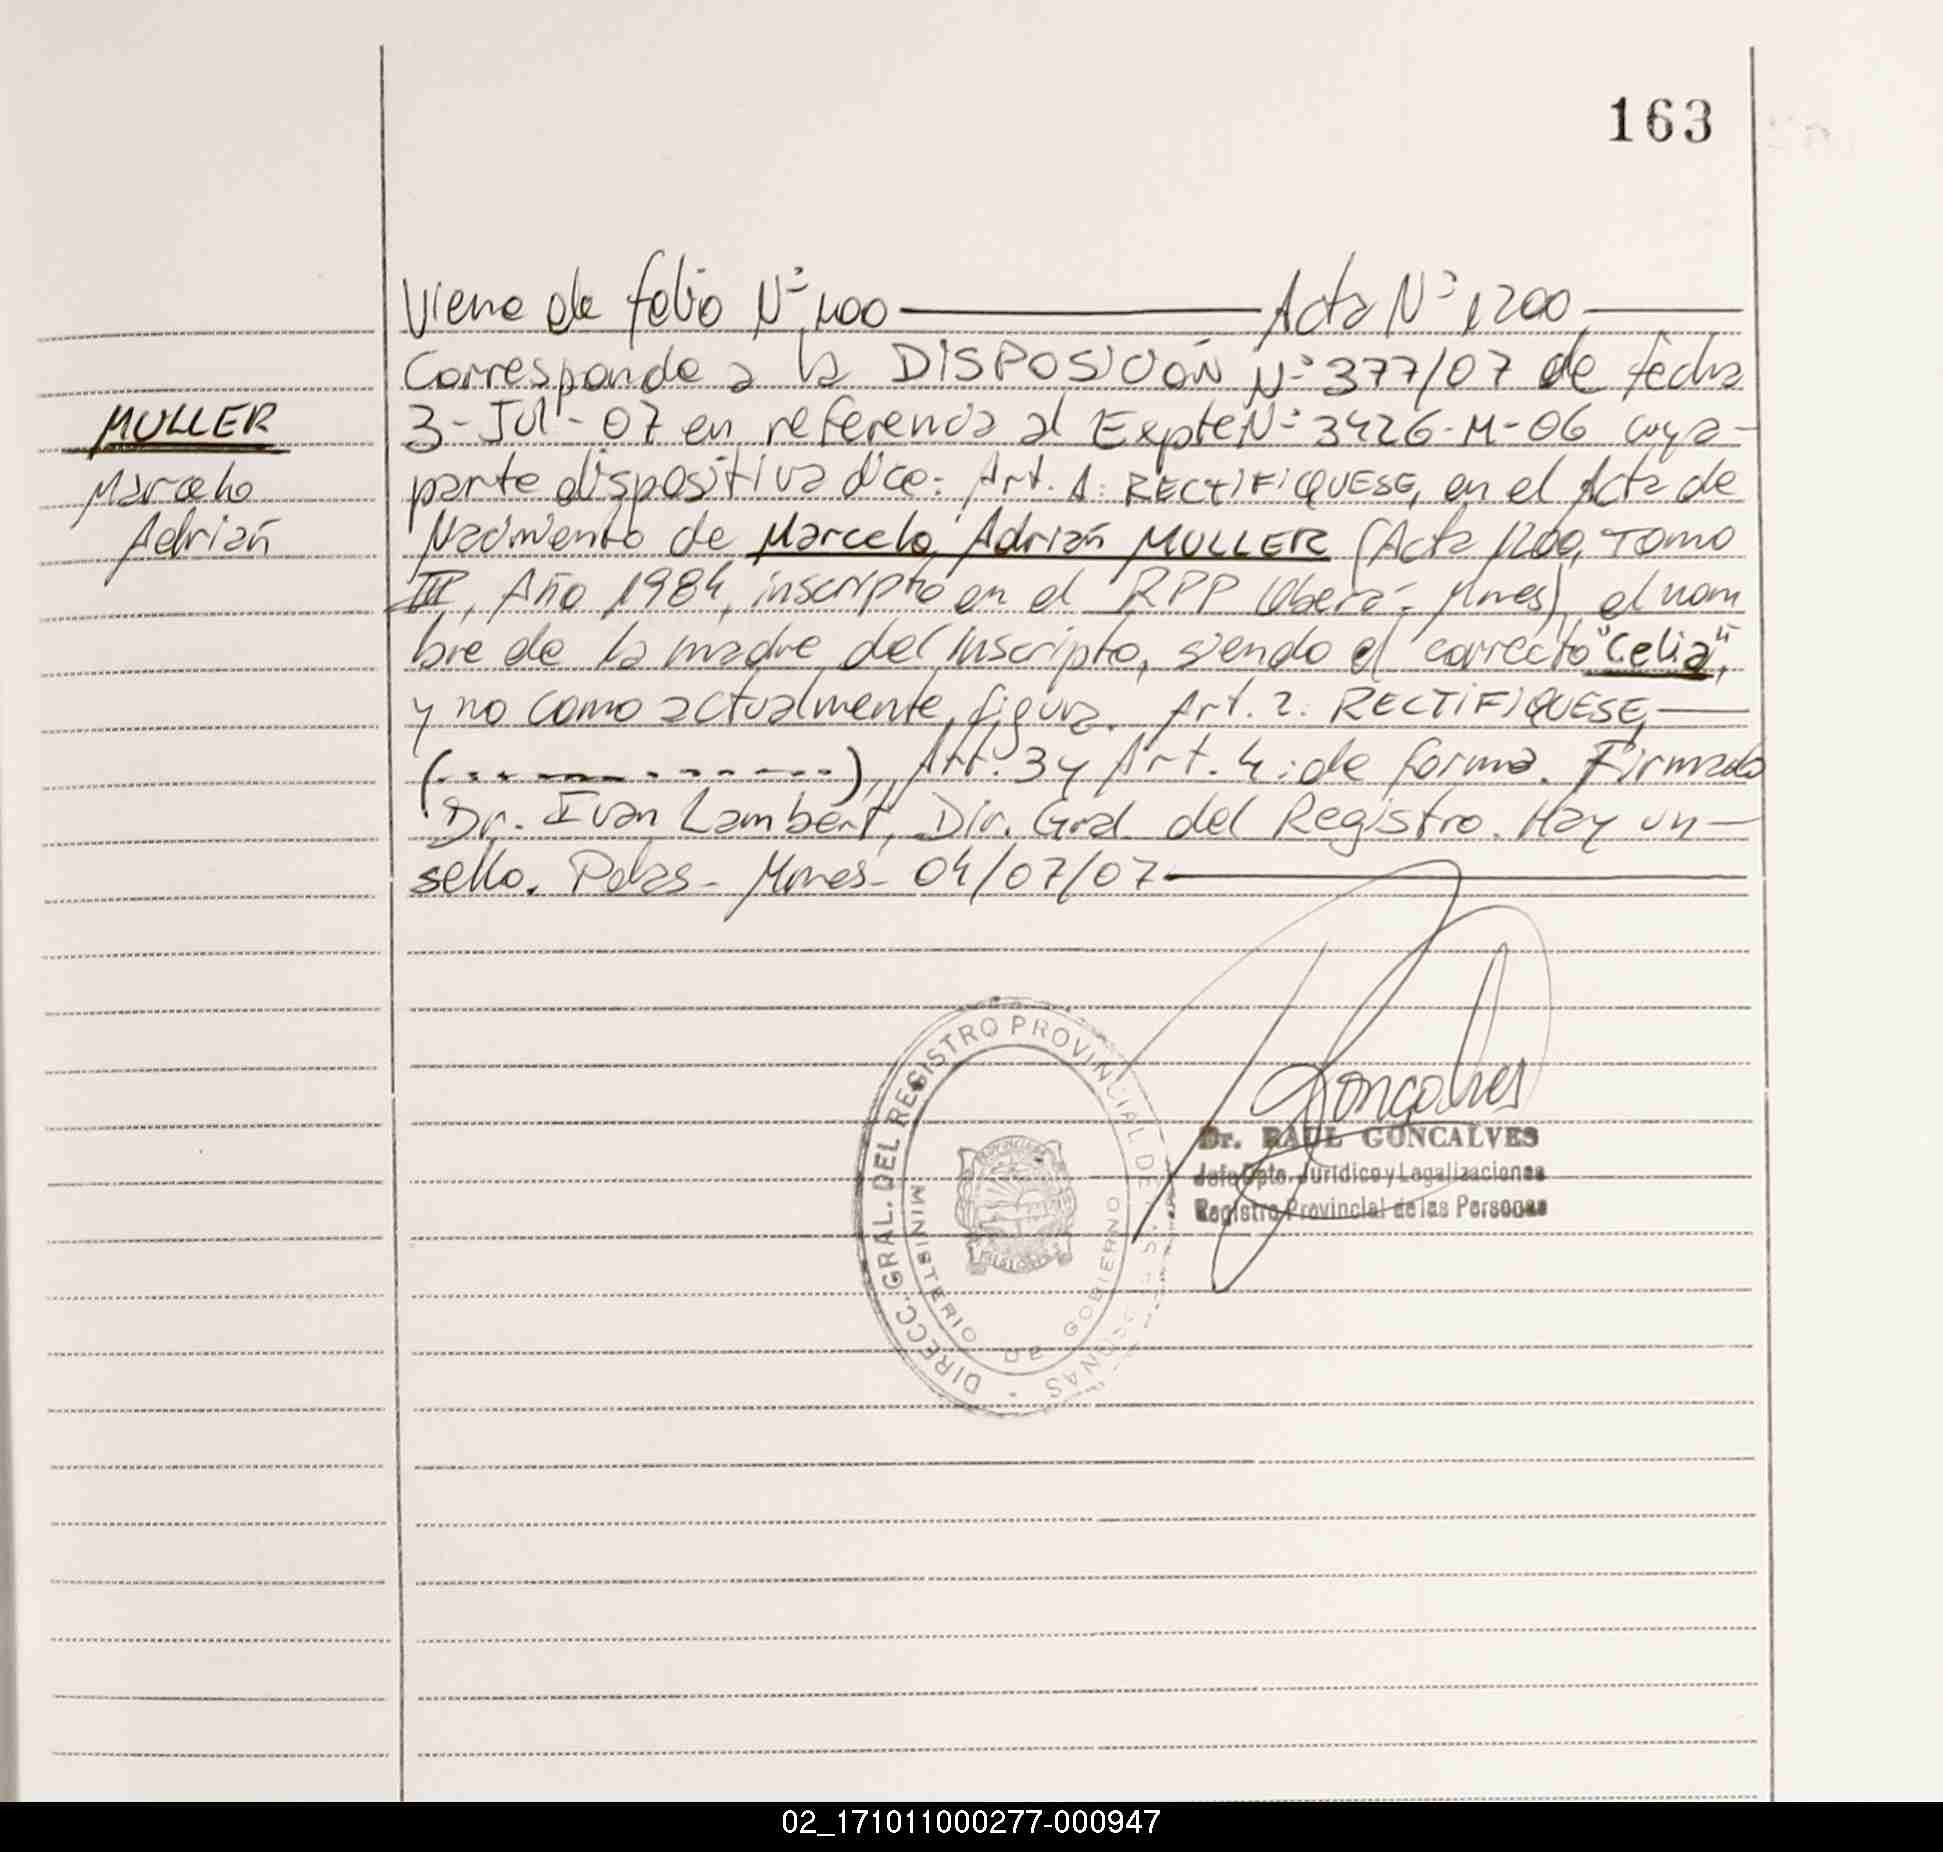 163
Viene de folio Nº 400 ——— Acta Nº 1200 ———
Corresponde a la DISPOSICIÓN Nº 377/07 de fecha
MULLER
Marcelo
Adrián
3-Jul-07 en referencia al Expte Nº 3426-M-06 cuya-
parte dispositiva dice: Art. 1: RECTIFIQUESE, en el Acta de
Nacimiento de Marcelo Adrián MULLER (Acta 1200, Tomo
III, Año 1984, inscripto en el RPP Oberá - Mnes), el nom
bre de la madre del inscripto, siendo el correcto "Celia",
y no como actualmente figura. Art. 2: RECTIFIQUESE, ———
(............), Art. 3 y Art. 4: de forma. Firmado
Dr. Ivan Lambert, Dir. Gral del Registro. Hay un —
sello. Pdas - Mnes - 04/07/07 ———
Goncalves
Dr. RAUL GONCALVES
Jefe Dpto. Jurídico y Legalizaciones
Registro Provincial de las Personas
DIRECC. GRAL. DEL REGISTRO PROVINCIAL DE LAS PERSONAS
MINISTERIO DE GOBIERNO
MISIONES
02_171011000277-000947